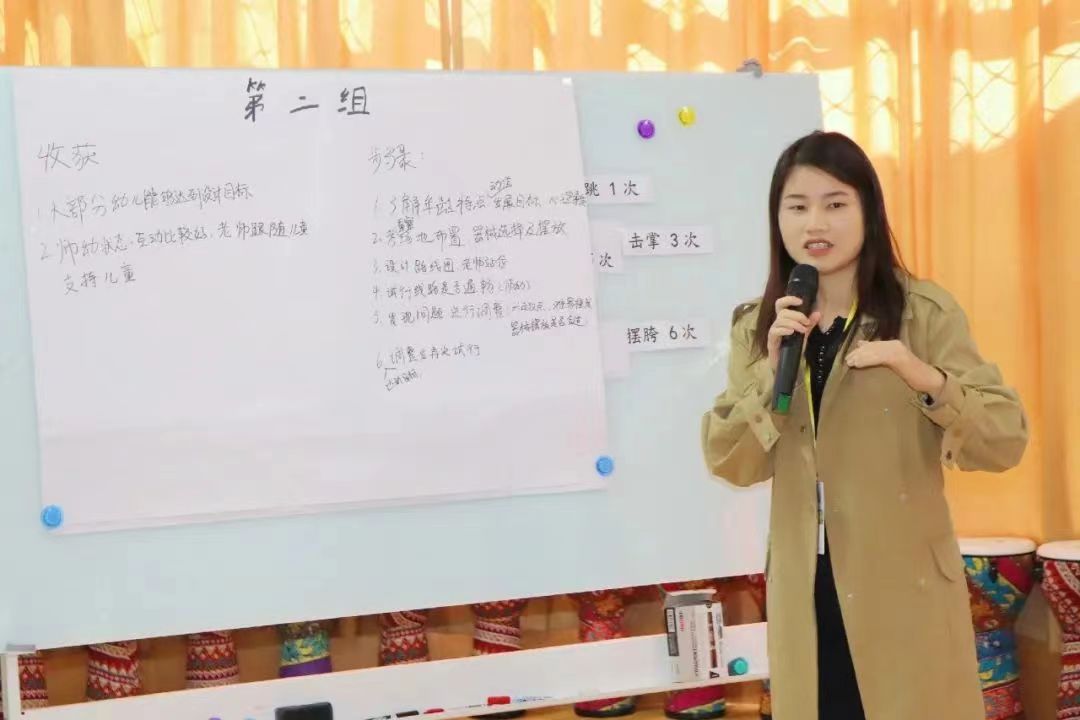 第二组
收获
1. 大部分幼儿能够达到设计目标
2. 师幼状态、互动比较好，老师跟随儿童
支持儿童
步骤：
1. 了解年龄特点 动作 发展目标、心
2. 场地布置、器械选择及摆放
3. 设计路线图、老师站位
4. 试行线路是否通畅（
5. 发现问题 进行调整
器械摆放是否合适
6. 调整后再次试行
跳 1 次
击掌 3 次
次
摆胯 6 次